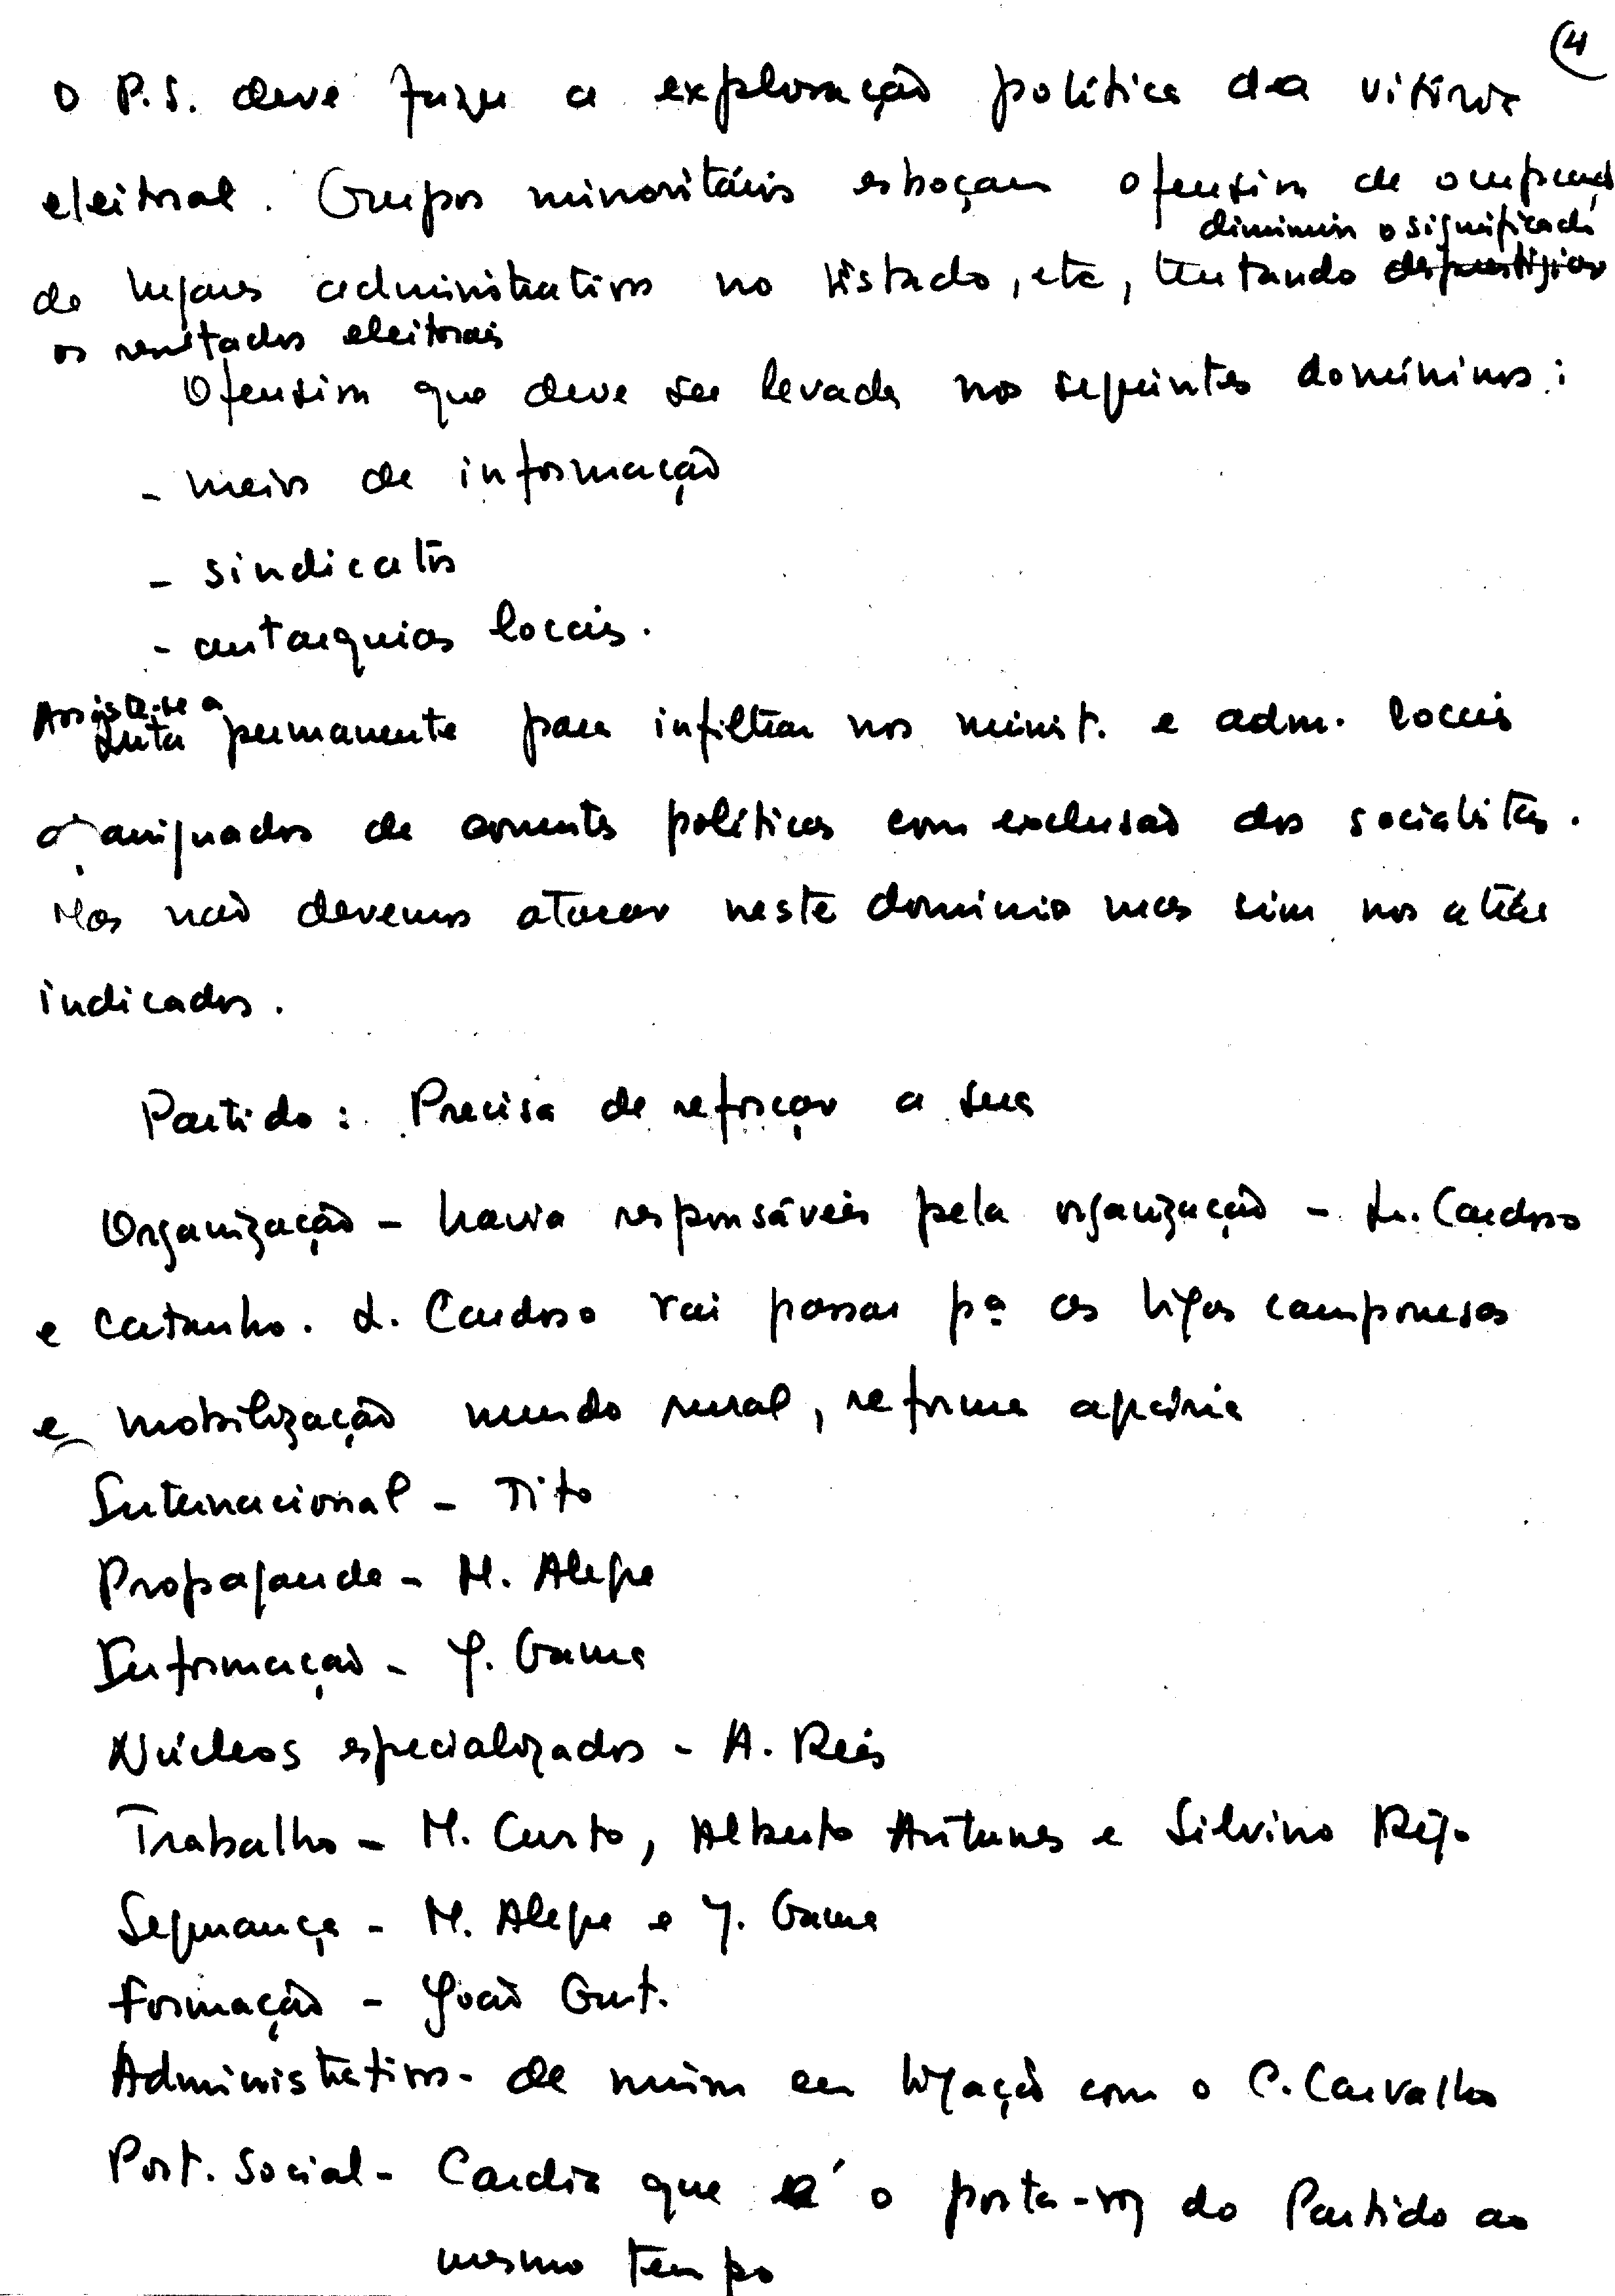 4
O P.S. deve fazer a exploração política da vitória
eleitoral. Grupos minoritários esboçam ofensiva de ocupação
diminuir o significado
de lugares administrativos no Estado, etc, tentando desprestigiar
os resultados eleitorais
Ofensiva que deve ser levada nos seguintes domínios:
- meios de informação
- sindicatos
- autarquias locais.
Assiste-se a
luta permanente para infiltrar nos minist. e adm. locais
apaniguados de correntes políticas com exclusão dos socialistas.
Mas não devemos atacar neste domínio mas sim nos atrás
indicados.
Partido: Precisa de reforçar a sua
Organização - havia responsáveis pela organização - L. Cardoso
e Catanho. L. Cardoso vai passar pª as ligas camponesas
e mobilização mundo rural, reforma agrária
Internacional - Tito
Propaganda - M. Alegre
Informação - J. Gama
Núcleos especializados - A. Reis
Trabalho - M. Curto, Alberto Antunes e Silvino Rêgo
Segurança - M. Alegre e J. Gama
Formação - João Gut.
Administrativos - de mim em ligação com o C. Carvalho
Port. Social - Cardia que é o porta-voz do Partido ao
mesmo tempo